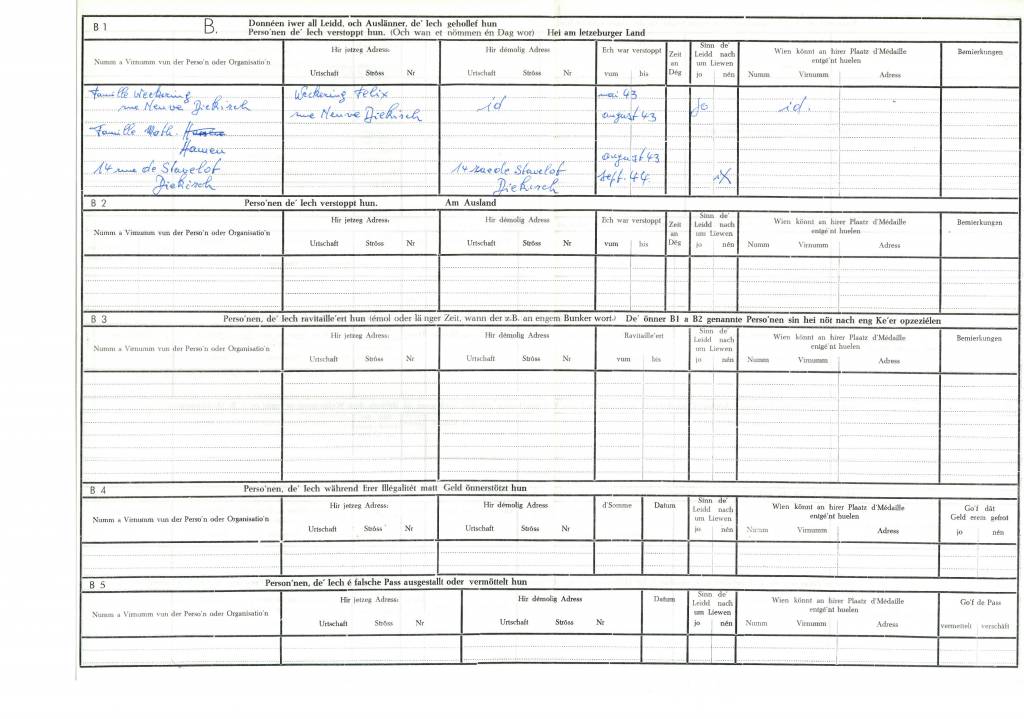 B 1 B. Donnéen iwer all Leidd, och Auslänner, de' Iech gehollef hun
Perso'nen de' Iech verstoppt hun. (Och wan et nömmen én Dag wor) Hei am letzeburger Land
Numm a Virnumm vun der Perso'n oder Organisatio'n
Hir jetzeg Adress:
Urtschaft Ströss Nr
Hir démolig Adress:
Urtschaft Ströss Nr
Ech war verstoppt
vum bis
Zeit
an
Dég
Sinn de'
Leidd nach
um Liewen
jo nén
Wien könnt an hirer Plaatz d'Médaille
entgé'nt huelen
Numm Virnumm Adress
Bemierkungen
Famille Weckering
rue Neuve Diekirch
Weckering Felix
rue Neuve Diekirch
id
mai 43
august 43
jo
id.
Famille Math.
Hamen
14 rue de Stavelot
Diekirch
14 rue de Stavelot
Diekirch
august 43
sept. 44
X
B 2 Perso'nen de' Iech verstoppt hun. Am Ausland
Numm a Virnumm vun der Perso'n oder Organisatio'n
Hir jetzeg Adress:
Urtschaft Ströss Nr
Hir démolig Adress:
Urtschaft Ströss Nr
Ech war verstoppt
vum bis
Zeit
an
Dég
Sinn de'
Leidd nach
um Liewen
jo nén
Wien könnt an hirer Plaatz d'Médaille
entgé'nt huelen
Numm Virnumm Adress
Bemierkungen
B 3 Perso'nen, de' Iech ravitaille'ert hun (émol oder lä nger Zeit, wann der z.B. an engem Bunker wort.) De' önner B1 a B2 genannte Perso'nen sin hei nöt nach eng Ke'er opzeziélen
Numm a Virnumm vun der Perso'n oder Organisatio'n
Hir jetzeg Adress:
Urtschaft Ströss Nr
Hir démolig Adress:
Urtschaft Ströss Nr
Ravitaille'ert
vum bis
Sinn de'
Leidd nach
um Liewen
jo nén
Wien könnt an hirer Plaatz d'Médaille
entgé'nt huelen
Numm Virnumm Adress
Bemierkungen
B 4 Perso'nen, de' Iech während Erer Illégalitét matt Geld önnerstötzt hun
Numm a Virnumm vun der Perso'n oder Organisatio'n
Hir jetzeg Adress:
Urtschaft Ströss Nr
Hir démolig Adress:
Urtschaft Ströss Nr
d'Somme
Datum
Sinn de'
Leidd nach
um Liewen
jo nén
Wien könnt an hirer Plaatz d'Médaille
entgé'nt huelen
Numm Virnumm Adress
Go'f dát
Geld erem gefrot
jo nén
B 5 Person'nen, de' Iech é falsche Pass ausgestallt oder vermöttelt hun
Numm a Virnumm vun der Perso'n oder Organisatio'n
Hir jetzeg Adress:
Urtschaft Ströss Nr
Hir démolig Adress
Urtschaft Ströss Nr
Datum
Sinn de'
Leidd nach
um Liewen
jo nén
Wien könnt an hirer Plaatz d'Médaille
entgé'nt huelen
Numm Virnumm Adress
Go'f de Pass
vermettelt verschäft